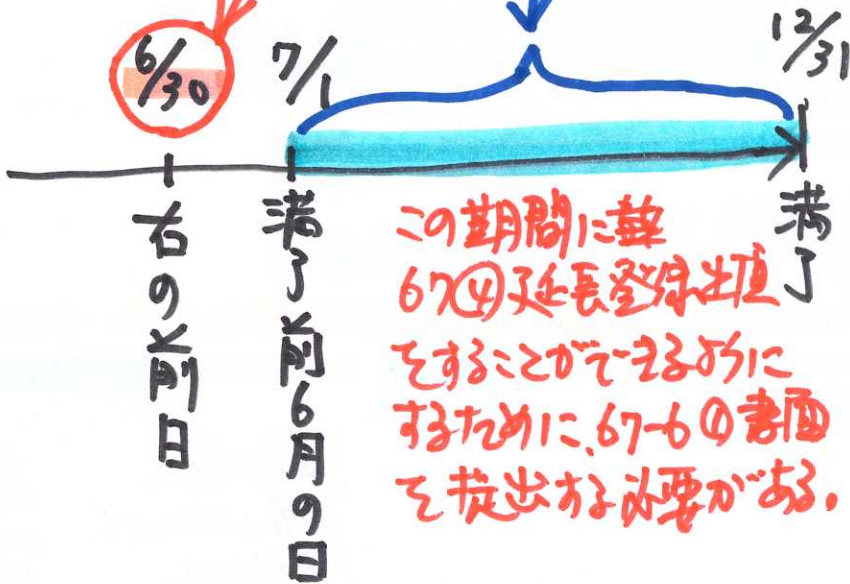 6/30
7/1
12/31
右の前日
満了前6月の日
満了
この期間に
67④延長登録出願
をすることができるように
するために、67-6①書面
を提出する必要がある。